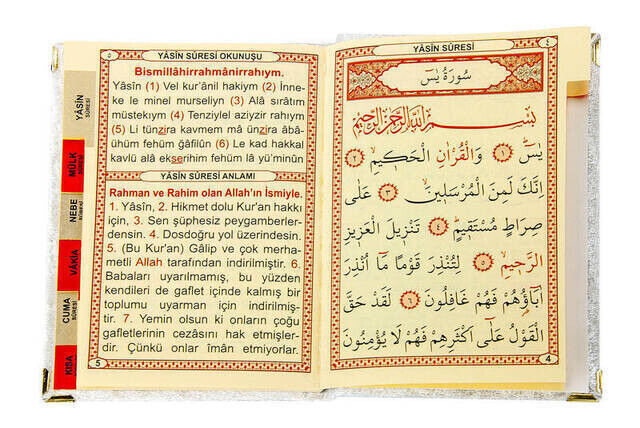 YÂSİN SÛRESİ
٤
سُورَةُ يٰسٓ
بِسْمِ اللّٰهِ الرَّحْمٰنِ الرَّحٖيمِ
يٰسٓ ﴿١﴾ وَالْقُرْاٰنِ الْحَكٖيمِ ﴿٢﴾
اِنَّكَ لَمِنَ الْمُرْسَلٖينَ ﴿٣﴾ عَلٰى
صِرَاطٍ مُسْتَقٖيمٍ ﴿٤﴾ تَنْزٖيلَ الْعَزٖيزِ
الرَّحٖيمِ ﴿٥﴾ لِتُنْذِرَ قَوْمًا مَٓا اُنْذِرَ
اٰبَٓاؤُ۬هُمْ فَهُمْ غَافِلُونَ ﴿٦﴾ لَقَدْ حَقَّ
الْقَوْلُ عَلٰٓى اَكْثَرِهِمْ فَهُمْ لَا يُؤْمِنُونَ
4
٥
YÂSİN SÛRESİ OKUNUŞU
Bismillâhirrahmânirrahıym.
Yâsîn (1) Vel kur'ânil hakiym (2) İnne-
ke le minel murseliyn (3) Alâ sırâtim
müstekıym (4) Tenziylel aziyzir rahıym
(5) Li tünzira kavmem mâ ünzira âbâ-
ühüm fehüm ğâfilûn (6) Le kad hakkal
kavlü alâ ekserihim fehüm lâ yü'minûn
YÂSİN SÛRESİ ANLAMI
Rahman ve Rahim olan Allah'ın İsmiyle.
1. Yâsîn, 2. Hikmet dolu Kur'an hakkı
için, 3. Sen şüphesiz peygamberler-
densin. 4. Dosdoğru yol üzerindesin.
5. (Bu Kur'an) Gâlip ve çok merha-
metli Allah tarafından indirilmiştir. 6.
Babaları uyarılmamış, bu yüzden
kendileri de gaflet içinde kalmış bir
toplumu uyarman için indirilmiş-
tir. 7. Yemin olsun ki onların çoğu
gafletlerinin cezasını hak etmişler-
dir. Çünkü onlar îmân etmiyorlar.
5
YÂSİN
SÛRESİ
MÜLK
SÛRESİ
NEBE
SÛRESİ
VÂKIA
SÛRESİ
CUMA
SÛRESİ
KISA